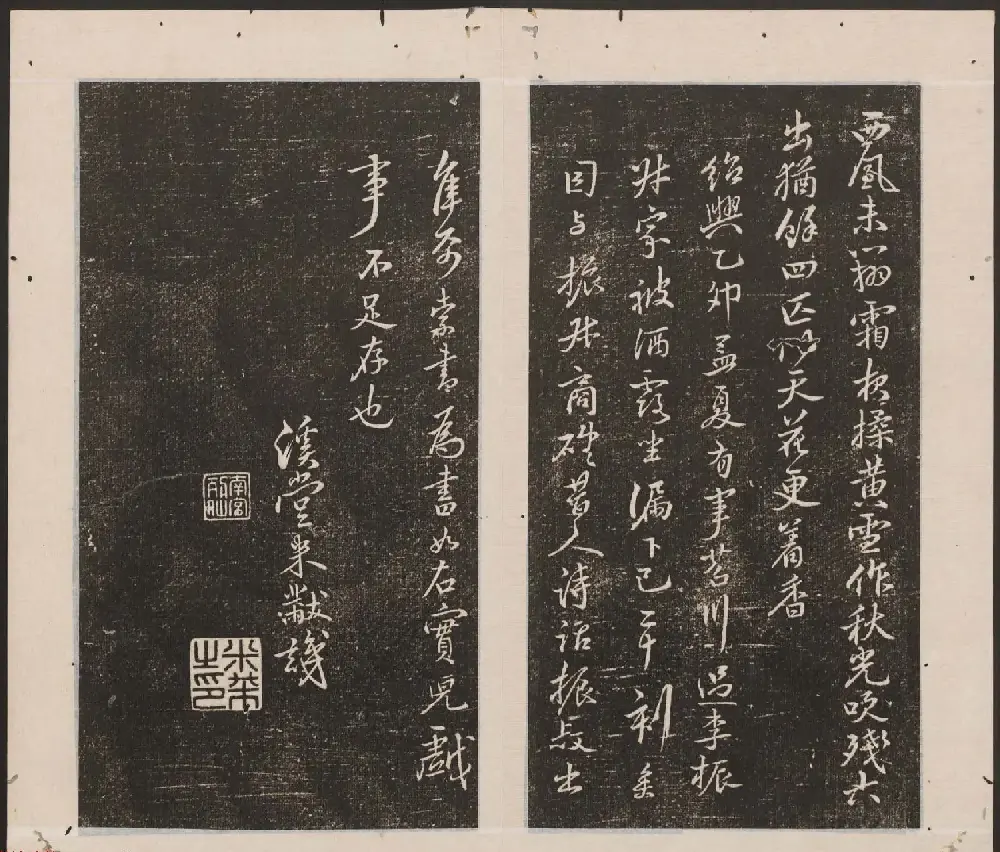 西風未翦霜揉黃雪作秋光吹殘六
出猶餘四匹似天花更著香
紹興乙卯孟夏有事苕川過李振
叔家被酒露坐漏下已二十刻矣
因与振叔商確昔人詩話振叔出
索書為書如右實兒戲
事不足存也
溪堂米黻識
南宮
米芾之印